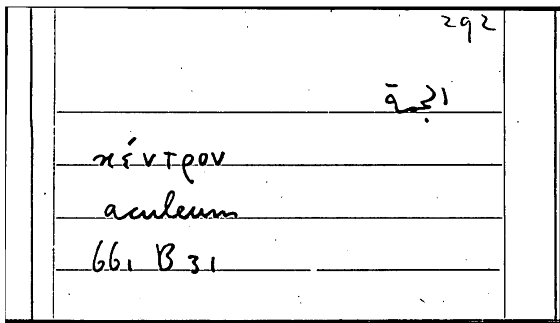 292
الجمة
κέντρον
aculeum
661 B 31